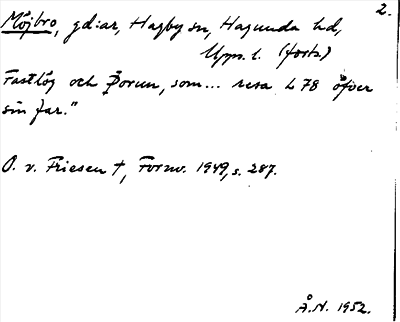 2.
Möjbro, gd:ar, Hagby sn, Hagunda hd,
Upps. l. (forts.)
Fastlög och Þorun, som... resa L 78 öfver
sin far."
O. v. Friesen †, Fornv. 1949, s. 287.
Å.N. 1952.